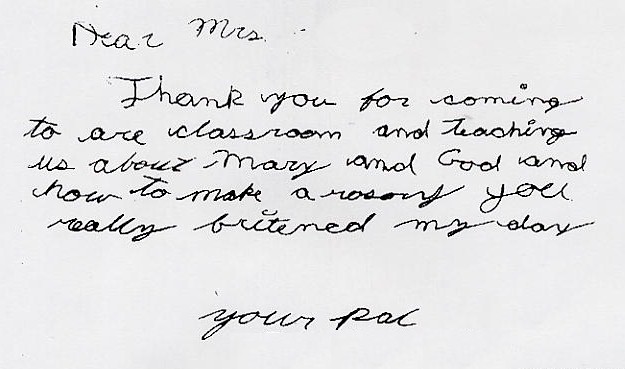 Dear Mrs.
Thank you for coming
to are classroom and teaching
us about Mary and God and
how to make a rosory you
really britened my day
your pal